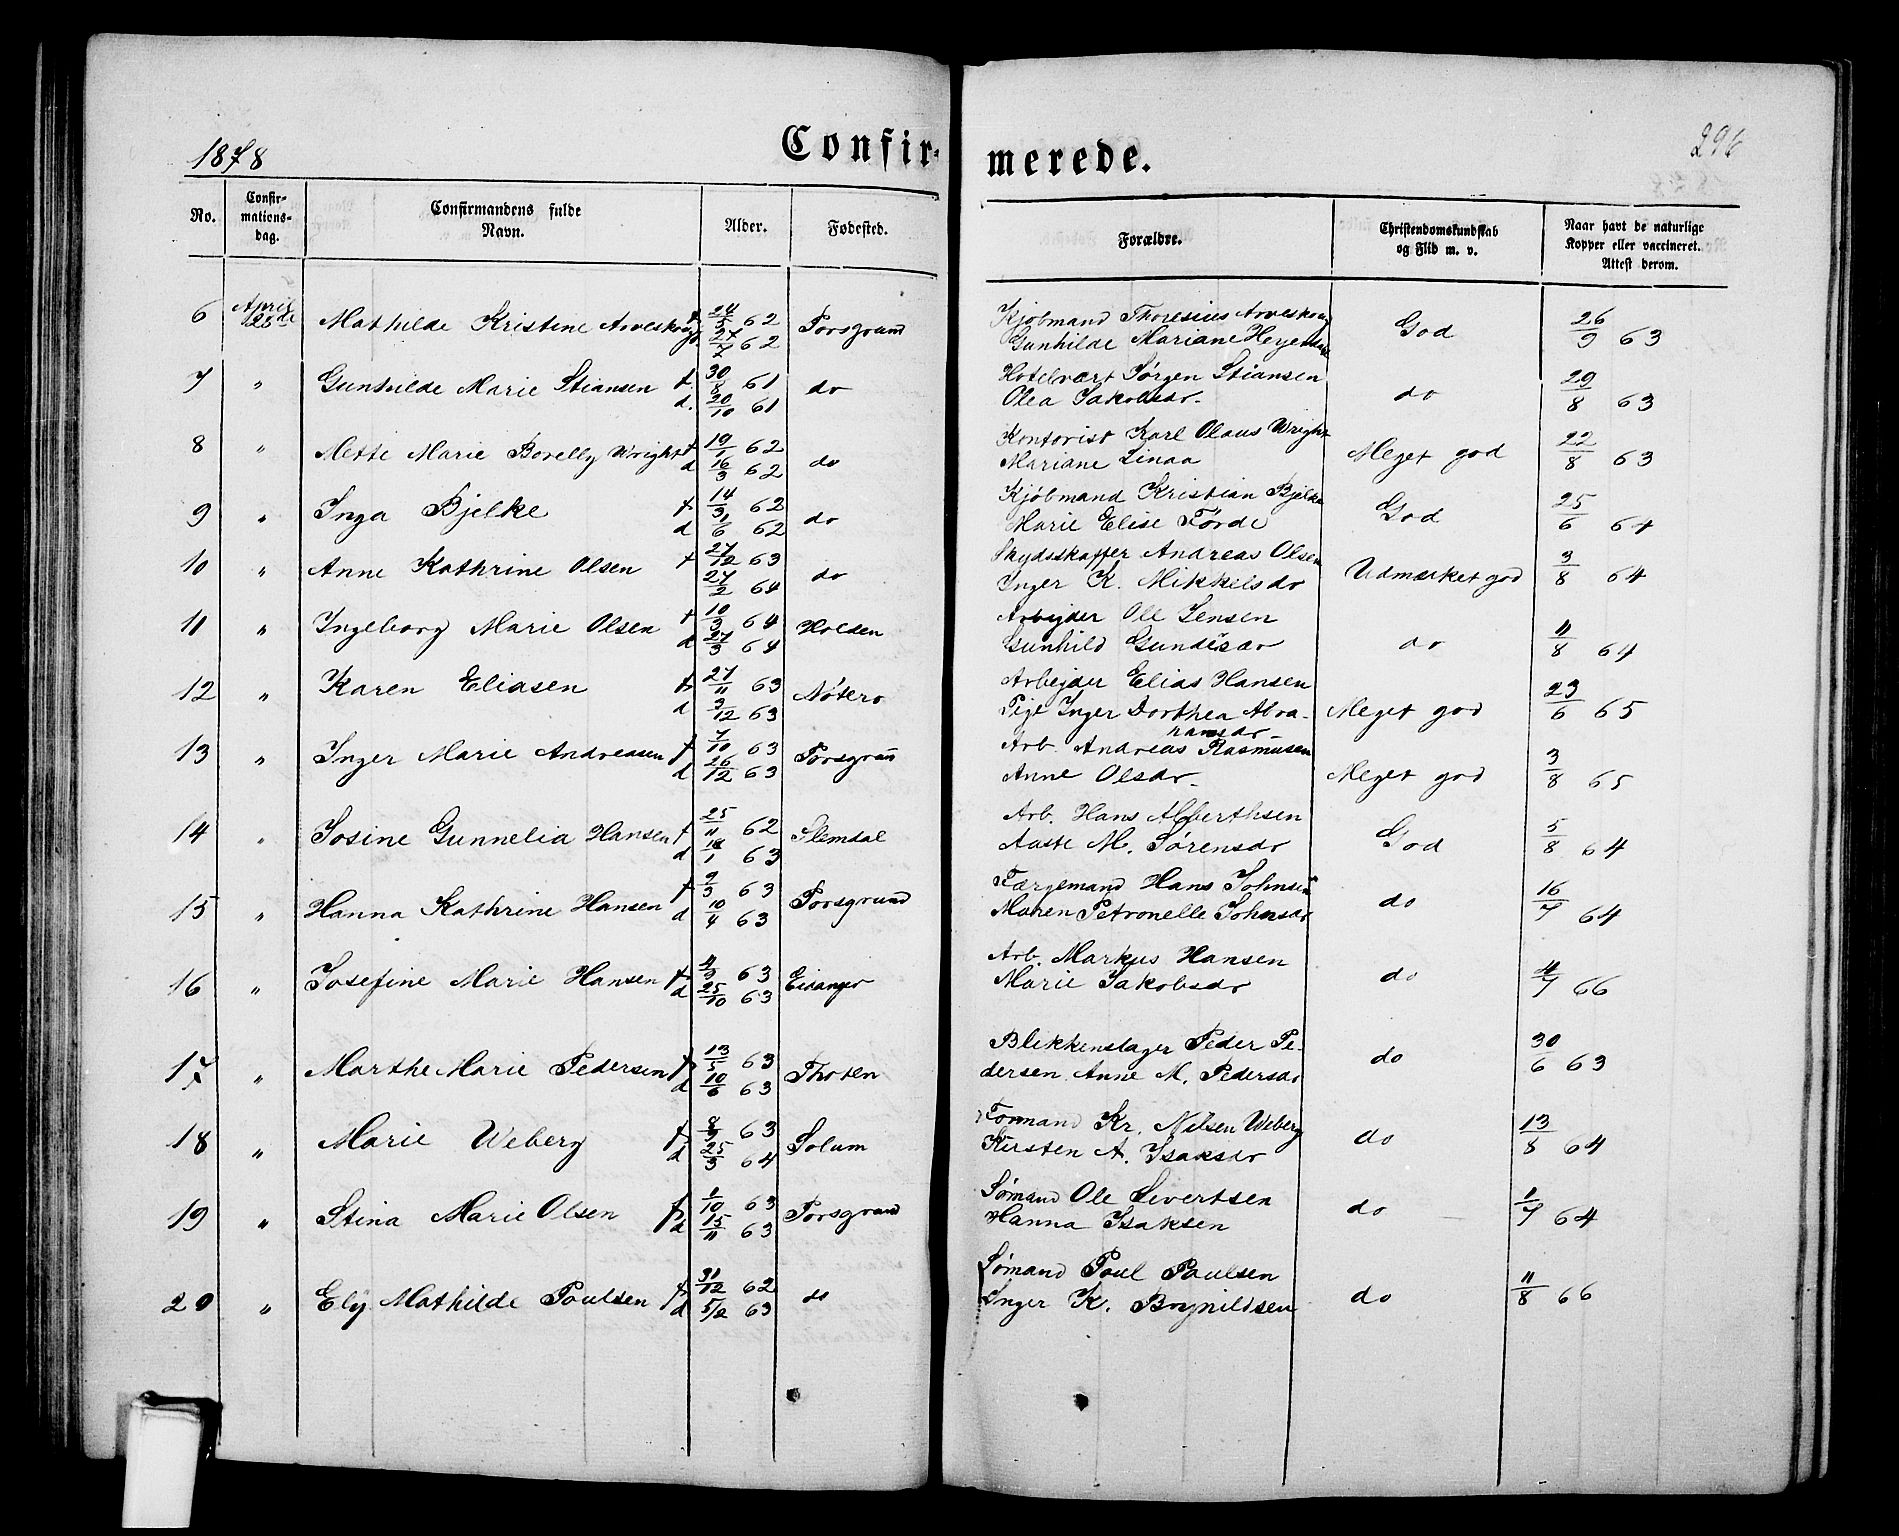 1878
Confir-
merede.
296
No.
Confir-
mations-
dag.
Confirmandens fulde
Navn.
Alder.
Fødested.
Forældre.
Christendomskundskab
og Flid m. v.
Naar havt de naturlige
Kopper eller vaccineret.
Attest derom.
6 April 28de Mathilde Kristine Arveskoug f 24/5 62 Porsgrund Kjøbmand Thoresius Arveskoug God 26/9 63
27/7 62 Gunhilde Mariane
7 " Gunhilde Marie Stiansen f. 30/8 61 do Hotelvært Jørgen Stiansen do 29/8 63
d. 20/10 61 Olea Jakobsdr.
8 " Mette Marie Borelly Wright f 19/1 62 do Kontorist Karl Olaus Wright Meget god 22/8 63
d 16/3 62 Mariane Linaa
9 " Inga Bjelke f 14/3 62 do Kjøbmand Kristian Bjelke God 25/6 64
d 1/6 62 Marie Elise Førde
10 " Anne Kathrine Olsen f 27/12 63 do Skydsskaffer Andreas Olsen Udmærket god 3/8 64
27/2 64 Inger K. Mikkelsdr
11 " Ingeborg Marie Olsen f 10/3 64 Holden Arbejder Ole Jensen do 11/8 64
d 27/3 64 Gunhild
12 " Karen Eliasen f 27/11 63 Nøtero Arbejder Elias Hansen Meget god 23/6 65
d 3/12 63 Pige Inger Dorthea Abra-
hamsdr
13 " Inger Marie Andreasen f 7/10 63 Porsgrun̄ Arb. Andreas Rasmusen Meget god 3/8 65
d 26/12 63 Anne Olsdr.
14 " Josine Gunnelia Hansen f 25/11 62 Slemdal Arb. Hans Alberthsen God 5/8 64
d 18/1 63 Aaste M. Sørensdr
15 " Hanna Kathrine Hansen f 9/3 63 Porsgrund Færgemand Hans Johnsen do 16/7 64
d 10/4 63 Maren Petronelle Johnsdr
16 " Josefine Marie Hansen f 4/9 63 Eidanger Arb. Markus Hansen do 4/7 66
d 25/10 63 Marie Jakobsdr
17 " Marthe Marie Pedersen f 13/5 63 Thoten Blikkenslager Peder Pe- do 30/6 63
d 10/6 63 dersen Anne M. Pedersdr
18 " Marie Weberg f 8/9 63 Solum Formand Kr. Nilsen Weberg do 13/8 64
d 25/3 64 Kirsten A. Isaksdr
19 " Stina Marie Olsen f 1/10 63 Porsgrund Sømand Ole Sivertsen do 1/7 64
d 15/11 63 Hanna Isaksen
20 " Ely Mathilde Poulsen f 31/12 62 do Sømand Poul Paulsen do 11/8 66
d 5/2 63 Inger K. Brynildsen